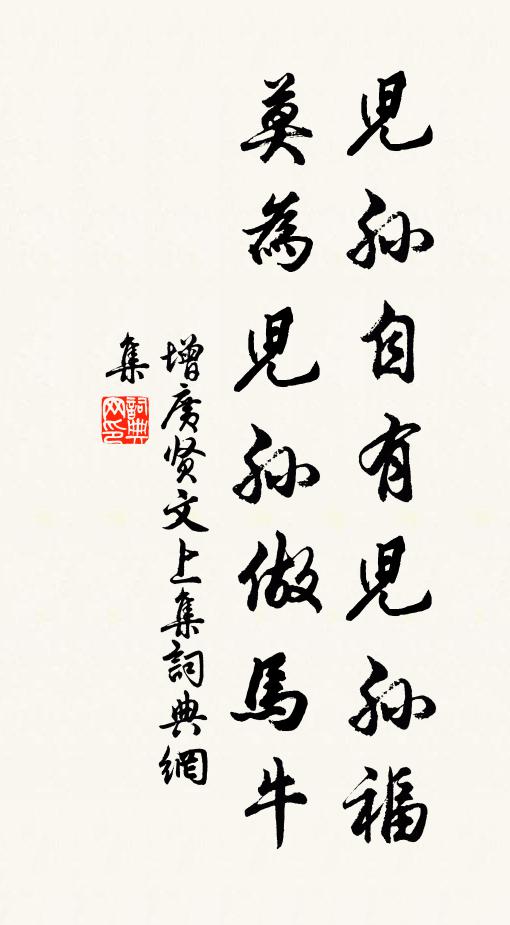 兒孫自有兒孫福
莫為兒孫做馬牛
增廣贤文上集詞典網
集
詞典网印